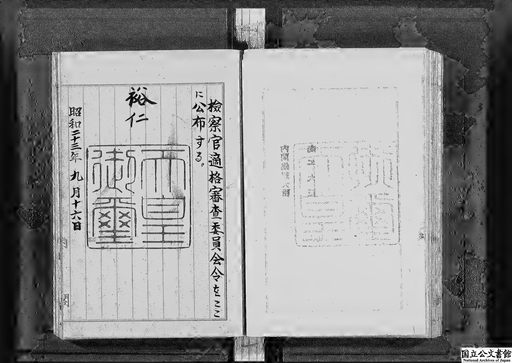 検察官適格審査委員会令をここ
に公布する。
裕仁
天皇
御璽
昭和二十三年九月十六日
内閣
国立公文書館
National Archives of Japan